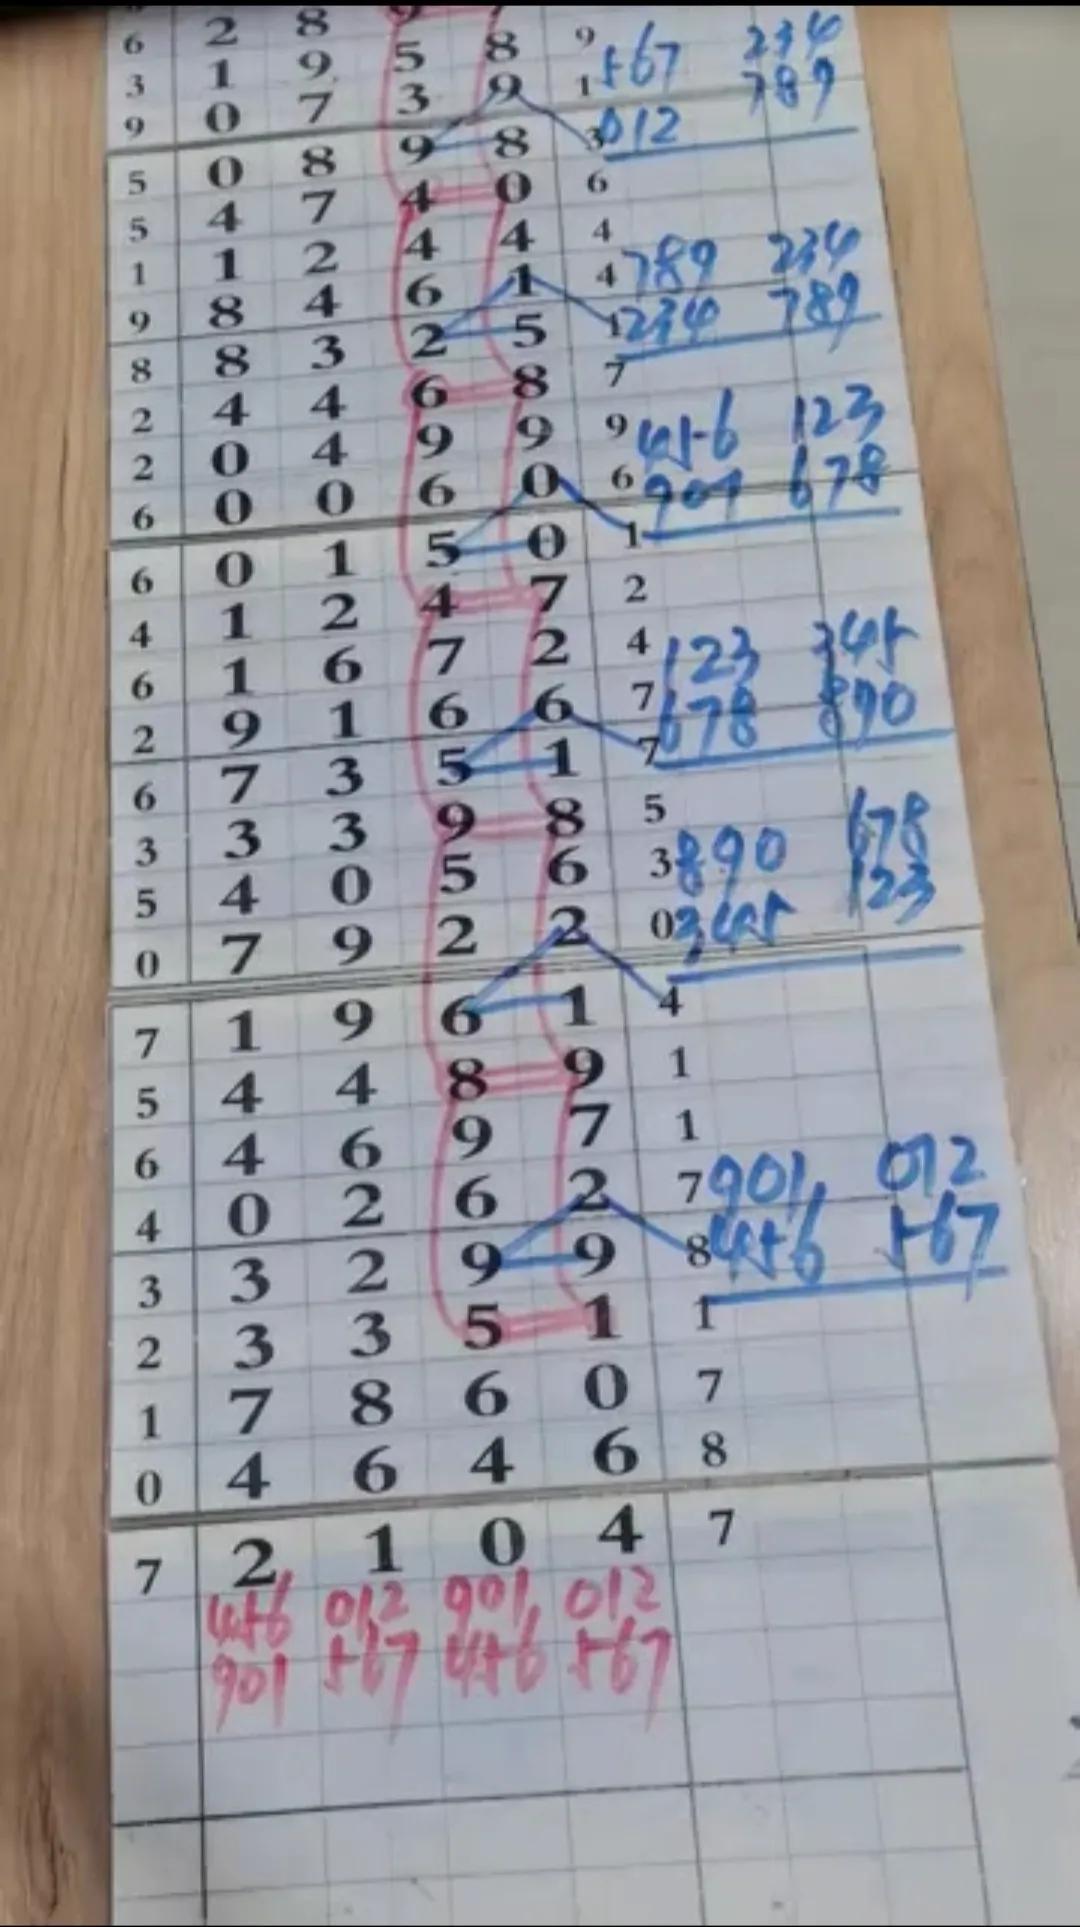 6 2 8 9 567 234
3 1 9 5 8 9 789
9 0 7 3 9 1 012
5 0 8 9 8 3
5 4 7 4 0 6
1 1 2 4 4 4 789 234
9 8 4 6 1 4 234 789
8 8 3 2 5 1
2 4 4 6 8 7
2 0 4 9 9 9 456 123
6 0 0 6 0 6 901 678
6 0 1 5 0 1
4 1 2 4 7 2
6 1 6 7 2 4 123 345
2 9 1 6 6 7 678 890
6 7 3 5 1 7
3 3 3 9 8 5
5 4 0 5 6 3 890 678
0 7 9 2 2 0 345 123
7 1 9 6 1 4
5 4 4 8 9 1
6 4 6 9 7 1
4 0 2 6 2 7 901, 012
3 3 2 9 9 8 456 567
2 3 3 5 1 1
1 7 8 6 0 7
0 4 6 4 6 8
7 2 1 0 4 7
456 012 901, 012
901 567 456 567